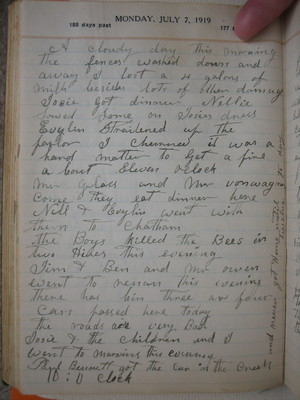 188 days past
MONDAY, JULY 7, 1919
177
A cloudy day this morning
the fences washed down and
away I lost a 4 galons of
milk besides lots of other
Josie got dinner Nellie
sowed some on Josies dress
Evylin Straitened up the
parlor I it was a
hand matter to get a fire
a bout Eleven o clock
Mr Glass and Mr
come they eat dinner here
Nell & Evylin went with
them to Chatham
the Boys killed the Bees in
two Hives this evening
Jim & Ben and Mr owen
went to this evening
there has bin three are four
Cars passed here today
the roads are very Bad
Josie & the children and I
went to this evening
Bennett got the Car in the Creek
10:0 clock
and never got home until